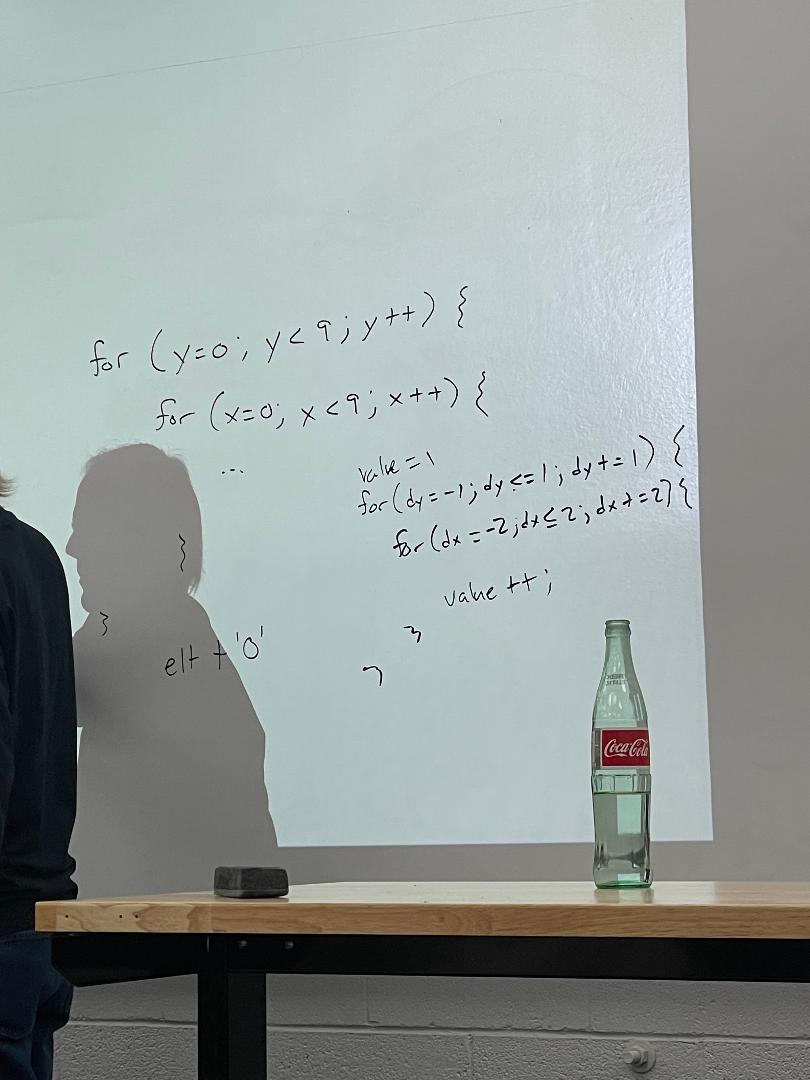 for (y=0; y<9; y++) {
for (x=0; x<9; x++) {
...
}
}
elt + '0'
value = 1
for (dy = -1; dy <= 1; dy += 1) {
for (dx = -2; dx ≤ 2; dx += 2) {
value ++;
}
}
Coca-Cola